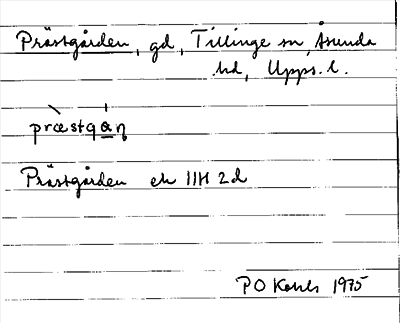 Prästgården, gd, Tillinge sn, Åsunda
hd, Upps. l.
præstgɑṇ
Prästgården ek 11H 2d
PO 1975